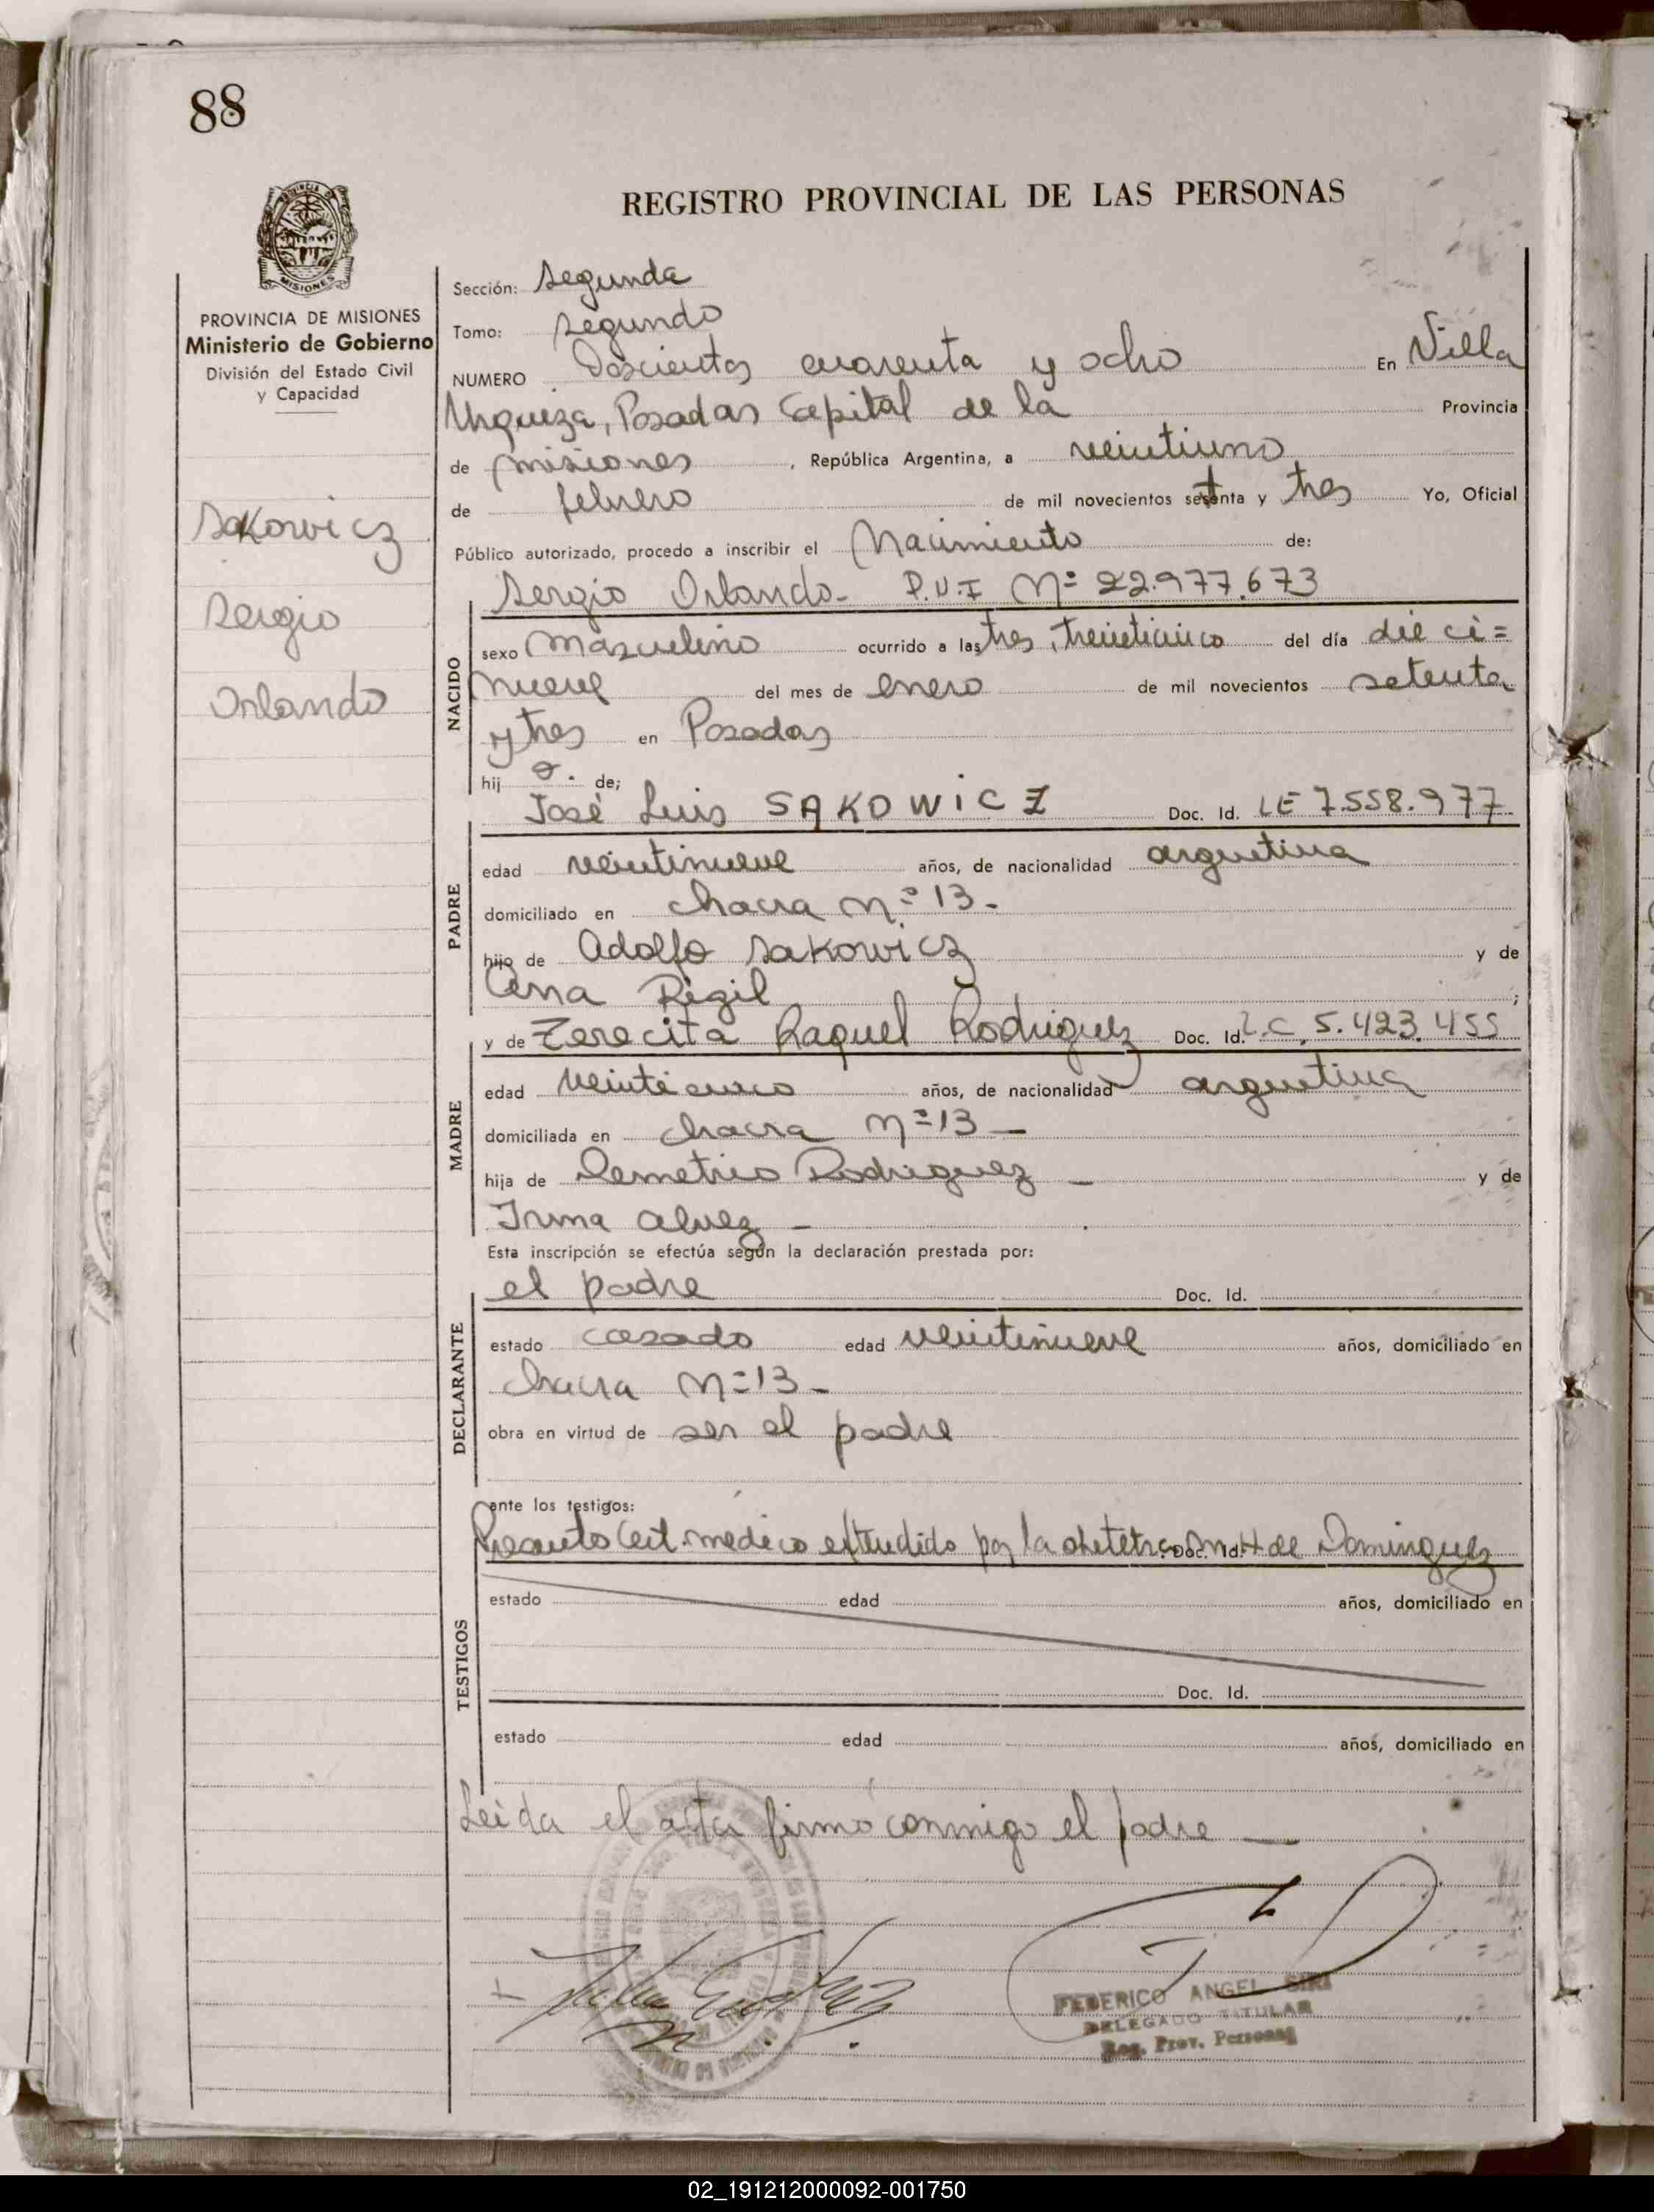 88
REGISTRO PROVINCIAL DE LAS PERSONAS
MISIONES
PROVINCIA DE MISIONES
Ministerio de Gobierno
División del Estado Civil
y Capacidad
Sakowicz
Sergio
Orlando
Sección: Segunda
Tomo: Segundo
NUMERO Doscientos cuarenta y ocho En Villa
Urquiza, Posadas Capital de la Provincia
de misiones, República Argentina, a veintiuno
de febrero de mil novecientos setenta y tres Yo, Oficial
Público autorizado, procedo a inscribir el Nacimiento de:
Sergio Orlando- P.U.I Nº 22.977.673
NACIDO
sexo Masculino ocurrido a las tres, treinticinco del día dieci=
nueve del mes de enero de mil novecientos setenta
y tres en Posadas
hij o. de;
José Luis SAKOWICZ Doc. Id. LE 7.558.977
PADRE
edad veintinueve años, de nacionalidad argentina
domiciliado en chacra nº 13-
hijo de Adolfo Sakowicz y de
Ana Rigil ;
y de Zerecita Raquel Rodriguez Doc. Id. L.C. 5.423.455
MADRE
edad veinticinco años, de nacionalidad argentina
domiciliada en chacra nº 13 -
hija de Demetrio Rodriguez - y de
Irma alvez -
Esta inscripción se efectúa según la declaración prestada por:
el padre Doc. Id.
DECLARANTE
estado casado edad veintinueve años, domiciliado en
chacra nº 13-
obra en virtud de ser el padre
ante los testigos:
Presento Cert. medico extendido por la obstetra Doc. Id. H de Dominguez
TESTIGOS
estado edad años, domiciliado en
Doc. Id.
estado edad años, domiciliado en
Leida el acta firmó conmigo el padre -
FEDERICO ANGEL SIRI
DELEGADO TITULAR
Reg. Prov. Personas
02_191212000092-001750